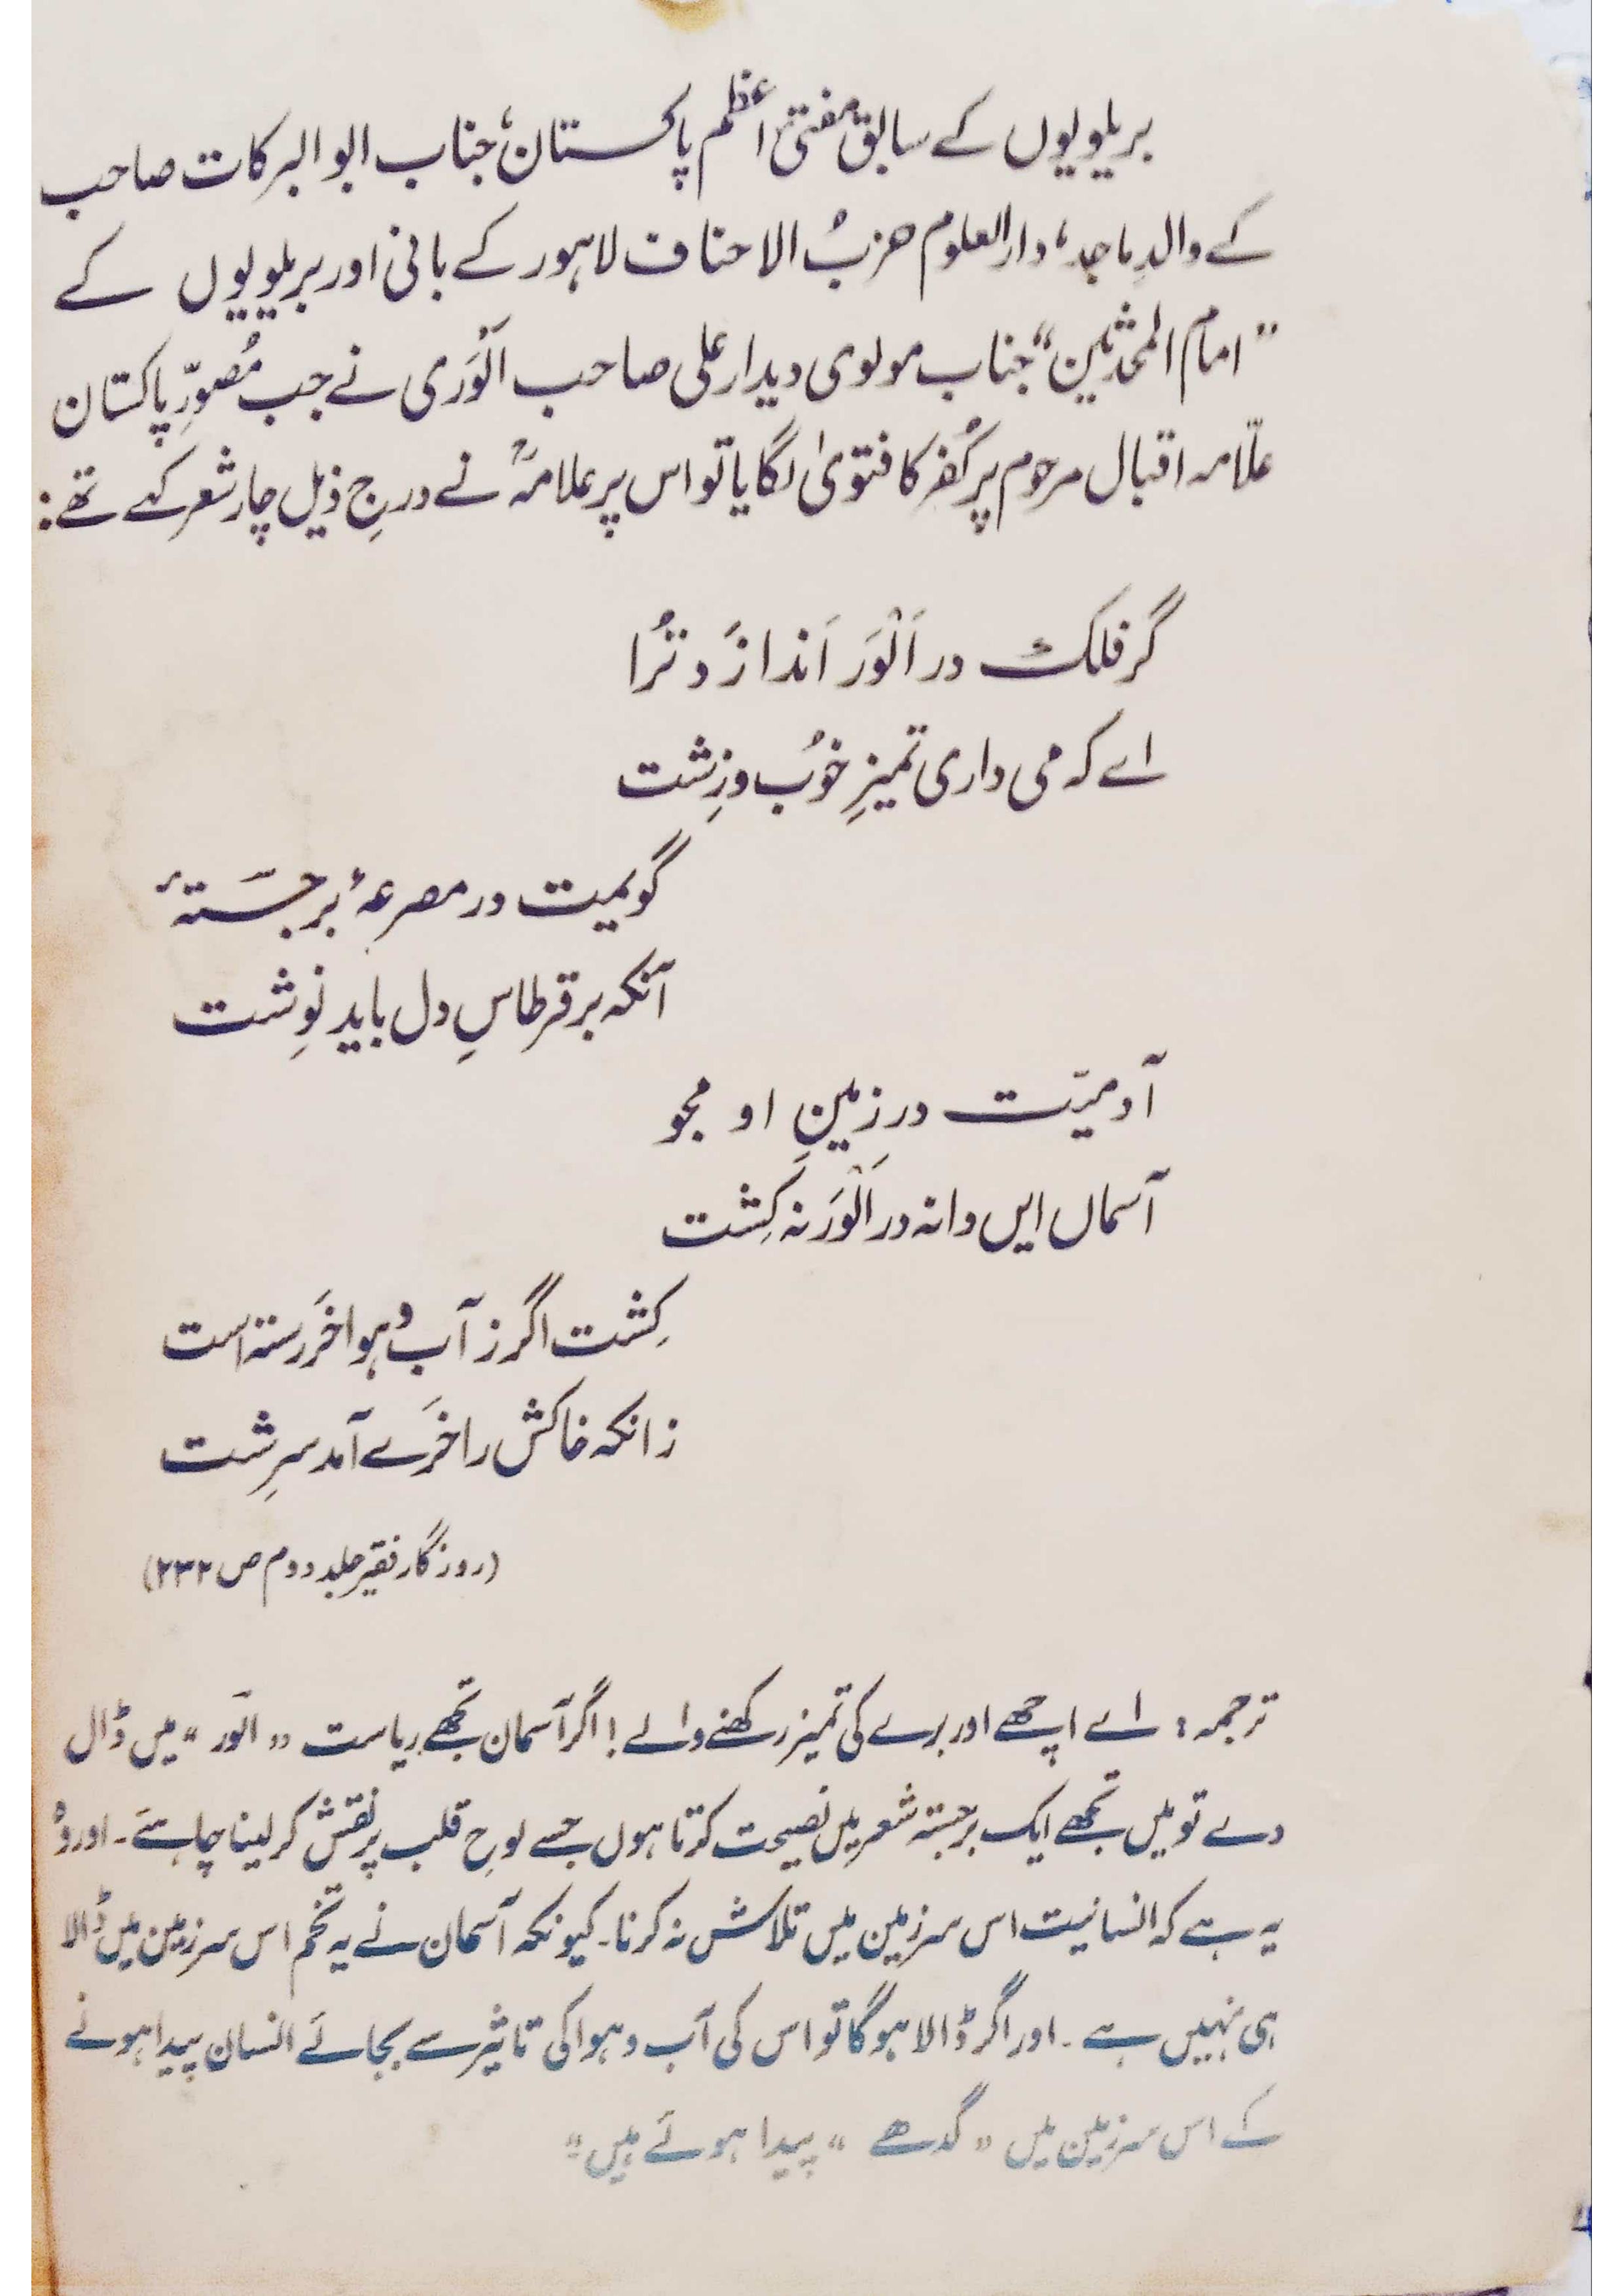 بریلویوں کے سابق مفتیٔ اعظم پاکستان، جناب ابوالبرکات صاحب
کے والدِ ماجد، دارالعلوم حزبُ الاحناف لاہور کے بانی اور بریلویوں کے
"امام المحدثین" جناب مولوی دیدار علی صاحب اَلْوَری نے جب مُصوِّرِ پاکستان
علّامہ اقبال مرحوم پر کُفر کا فتویٰ لگایا تو اس پر علامہؒ نے درجِ ذیل چار شعر کہے تھے:
گر فلک در اَلْوَر اَندازَد تُرا
اے کہ می داری تمیزِ خوُب و زِشت
گویمیت در مصرعۂ برجَستۂ
آنکہ بر قرطاسِ دل باید نوِشت
آدمیّت در زمینِ او مجو
آسماں ایں دانہ در اَلْوَر نہ کِشت
کِشت اگر ز آب و ہوا خَر رستہ است
زانکہ خاکش را خَرے آمد سرِشت
(روزگار فقیر جلد دوم ص ۲۳۲)
ترجمہ : اے اچھے اور برے کی تمیز رکھنے والے ! اگر آسمان تجھے ریاست "الوَر" میں ڈال
دے تو میں تجھے ایک برجستہ شعر میں نصیحت کرتا ہوں جسے لوحِ قلب پر نقش کر لینا چاہئے۔ اور وُہ
یہ ہے کہ انسانیت اس سرزمین میں تلاش نہ کرنا۔ کیونکہ آسمان نے یہ تخم اس سرزمین میں ڈالا
ہی نہیں ہے۔ اور اگر ڈالا ہوگا تو اس کی آب و ہوا کی تاثیر سے بجائے انسان پیدا ہونے
کے اس سرزمین میں "گدھے" پیدا ہوئے ہیں"